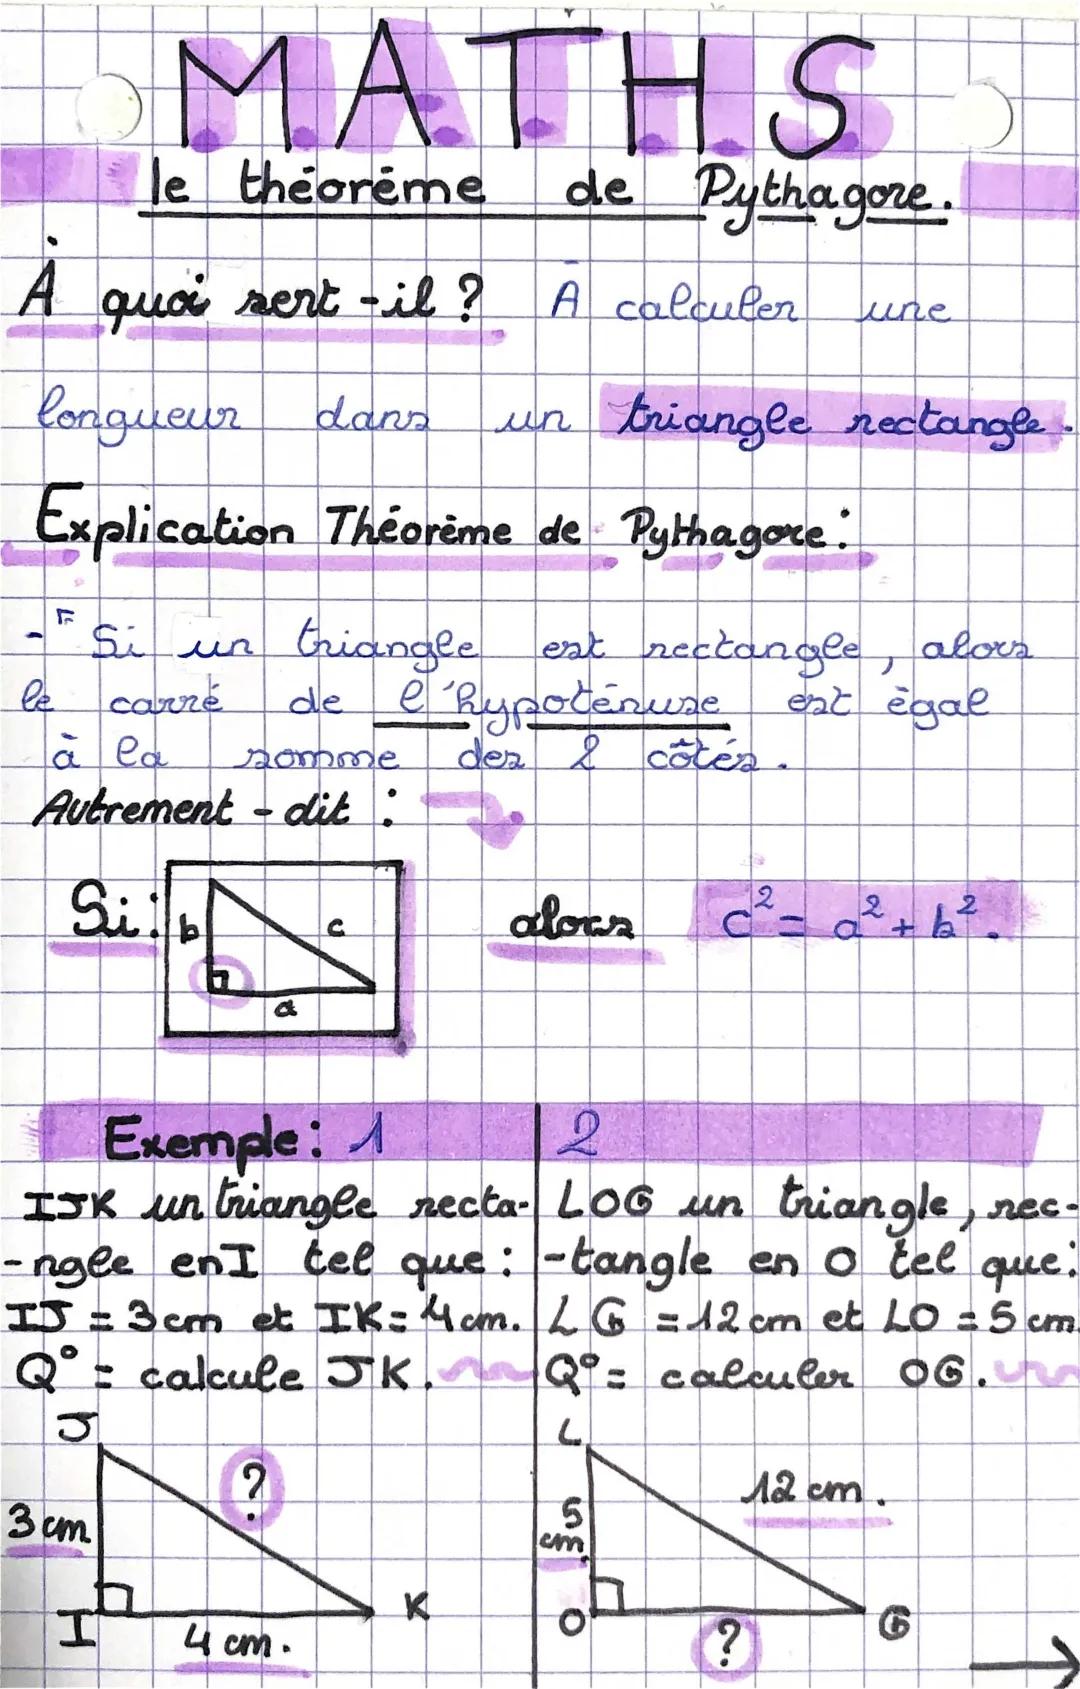 MATHS
le théorème de Pythagore.
À quoi sert-il ? À calculer une
longueur dans un triangle rectangle.
Explication Théorème de Pythagore :
- " Si un triangle est rectangle, alors
le carré de l'hypoténuse est égal
à la somme des 2 côtés.
Autrement - dit :
Si : b c a alors c² = a² + b².
Exemple : 1
IJK un triangle recta-
-ngle en I tel que :
IJ = 3 cm et IK = 4 cm.
Q° = calcule JK.
J
?
3 cm
I
K
4 cm.
2
LOG un triangle, rec-
-tangle en O tel que :
LG = 12 cm et LO = 5 cm.
Q° = calculer OG.
L
12 cm.
5
cm
O
G
?